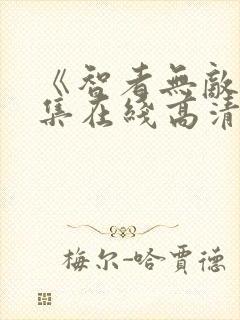 《智者無敵
集在綫高清
梅尔-哈賈德